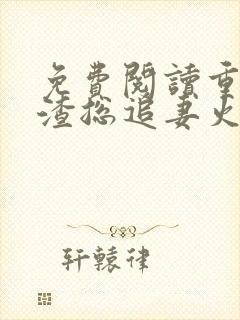 免費閱讀重
渣總追妻火
軒轅律